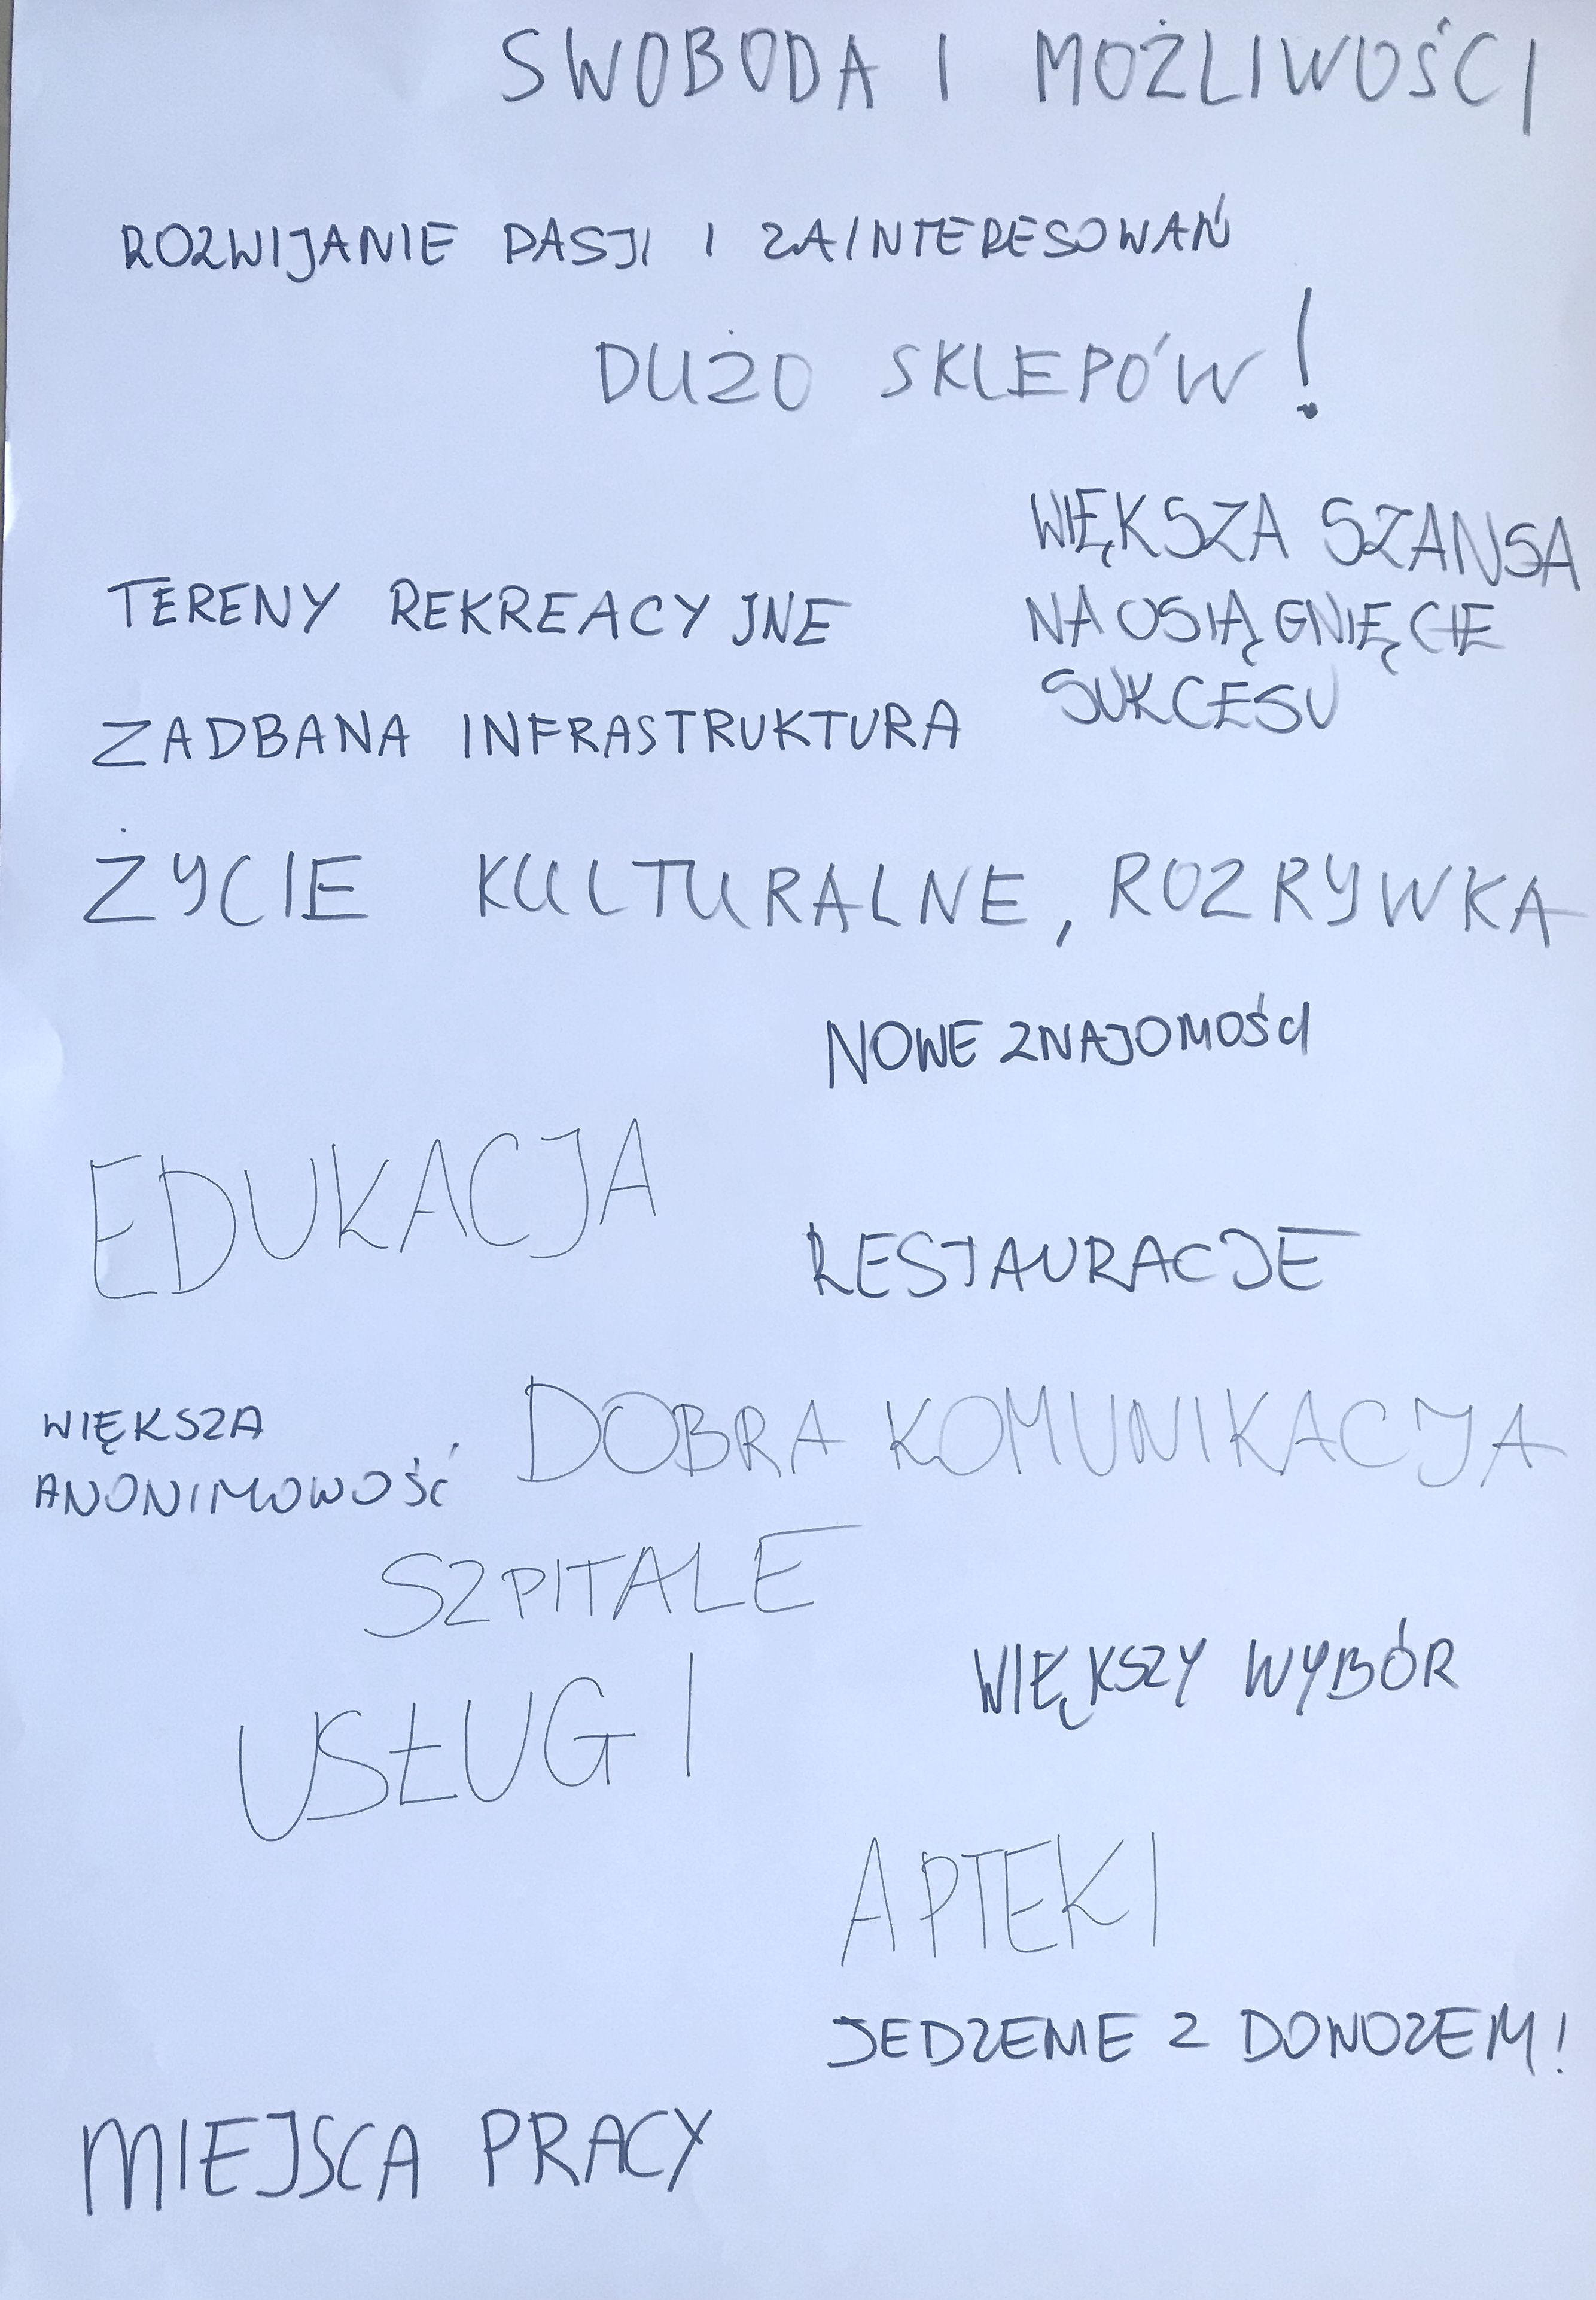 SWOBODA I MOŻLIWOŚCI
ROZWIJANIE PASJI I ZAINTERESOWAŃ
DUŻO SKLEPÓW!
WIĘKSZA SZANSA
NA OSIĄGNIĘCIE
SUKCESU
TERENY REKREACYJNE
ZADBANA INFRASTRUKTURA
ŻYCIE KULTURALNE, ROZRYWKA
NOWE ZNAJOMOŚCI
EDUKACJA
RESTAURACJE
WIĘKSZA
ANONIMOWOŚĆ
DOBRA KOMUNIKACJA
SZPITALE
WIĘKSZY WYBÓR
USŁUGI
APTEKI
JEDZENIE Z DOWOZEM!
MIEJSCA PRACY